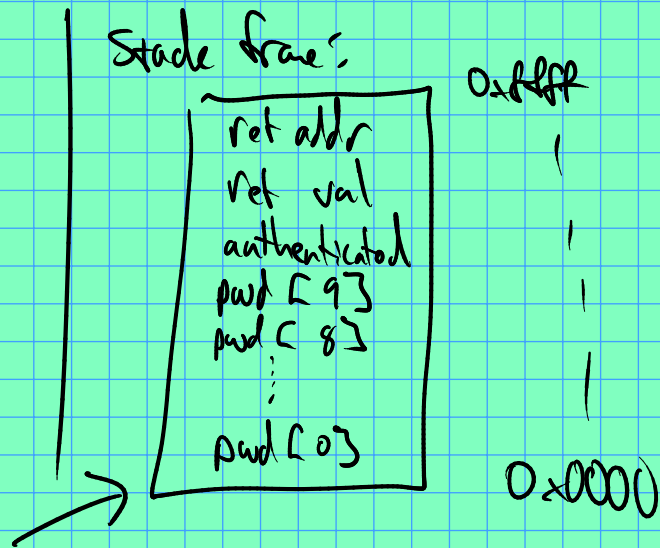 Stack frame:
0xffff
ret addr
ret val
authenticated
pwd [9]
pwd [8]
pwd [0]
0x0000